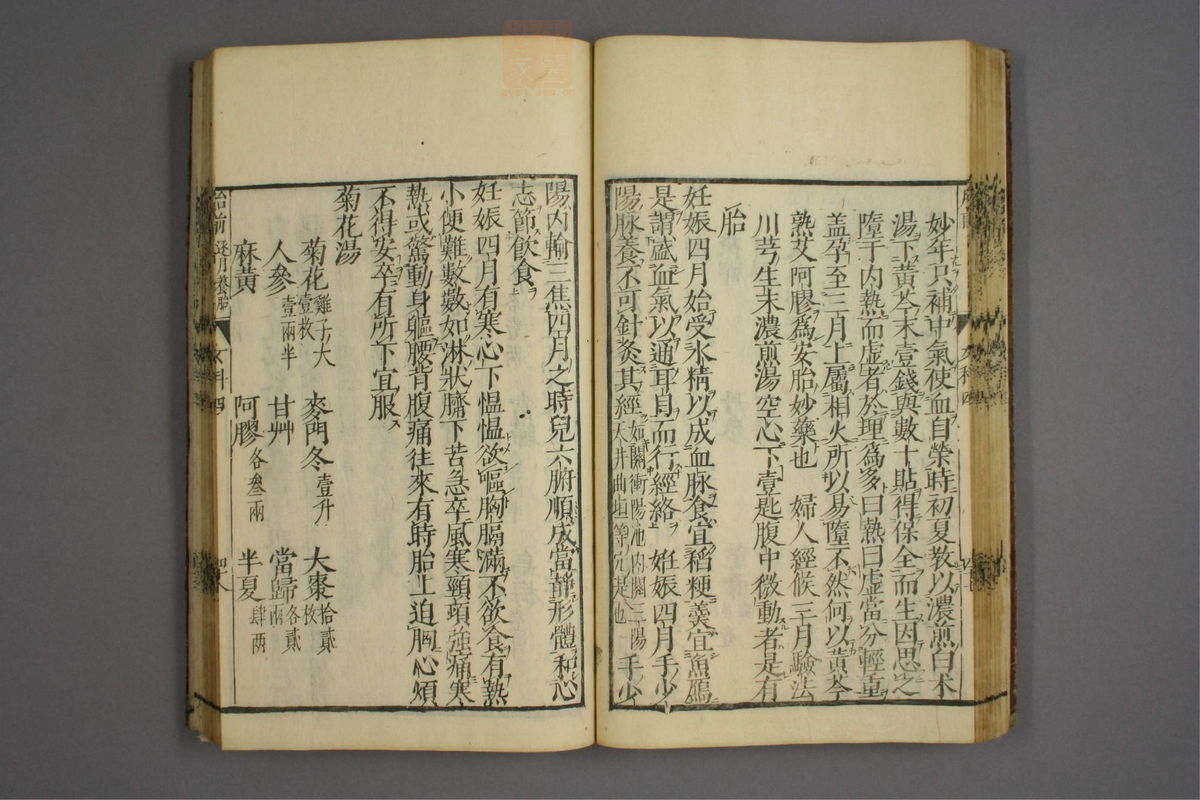 妙年只補中氣使血自榮時初夏教以濃煎白朮
湯下黃芩末壹錢與數十貼得保全而生因思之
墮于內熱而虛者於理爲多曰熱曰虛當分輕重
盖孕至三月上屬相火所以易墮不然何以黃芩
熟艾阿膠爲安胎妙藥也　婦人經候三月驗法
川芎生末濃煎湯空心下壹匙腹中微動者是有
胎
妊娠四月始受水精以成血脉食宜稻粳羹宜魚鴈
是謂盛血氣以通耳目而行經絡　妊娠四月手少
陽脉養不可針灸其經如關衝陽池內關三陽天井曲垣等穴是也　手少
陽內輸三焦四月之時兒六腑順成當靜形體和心
志節飲食
妊娠四月有寒心下慍慍欲嘔胸膈滿不欲食有熱
小便難數數如淋狀臍下苦急卒風寒頸項強痛寒
熱或驚動身軀腰背腹痛往來有時胎上迫胸心煩
不得安卒有所下宜服
菊花湯
菊花雞子大壹枚　麥門冬壹升　大棗拾貳枚
人參壹兩半　甘艸　當歸各貳兩
麻黃　阿膠各叁兩　半夏肆两
胎前　逐月養胎　女科四